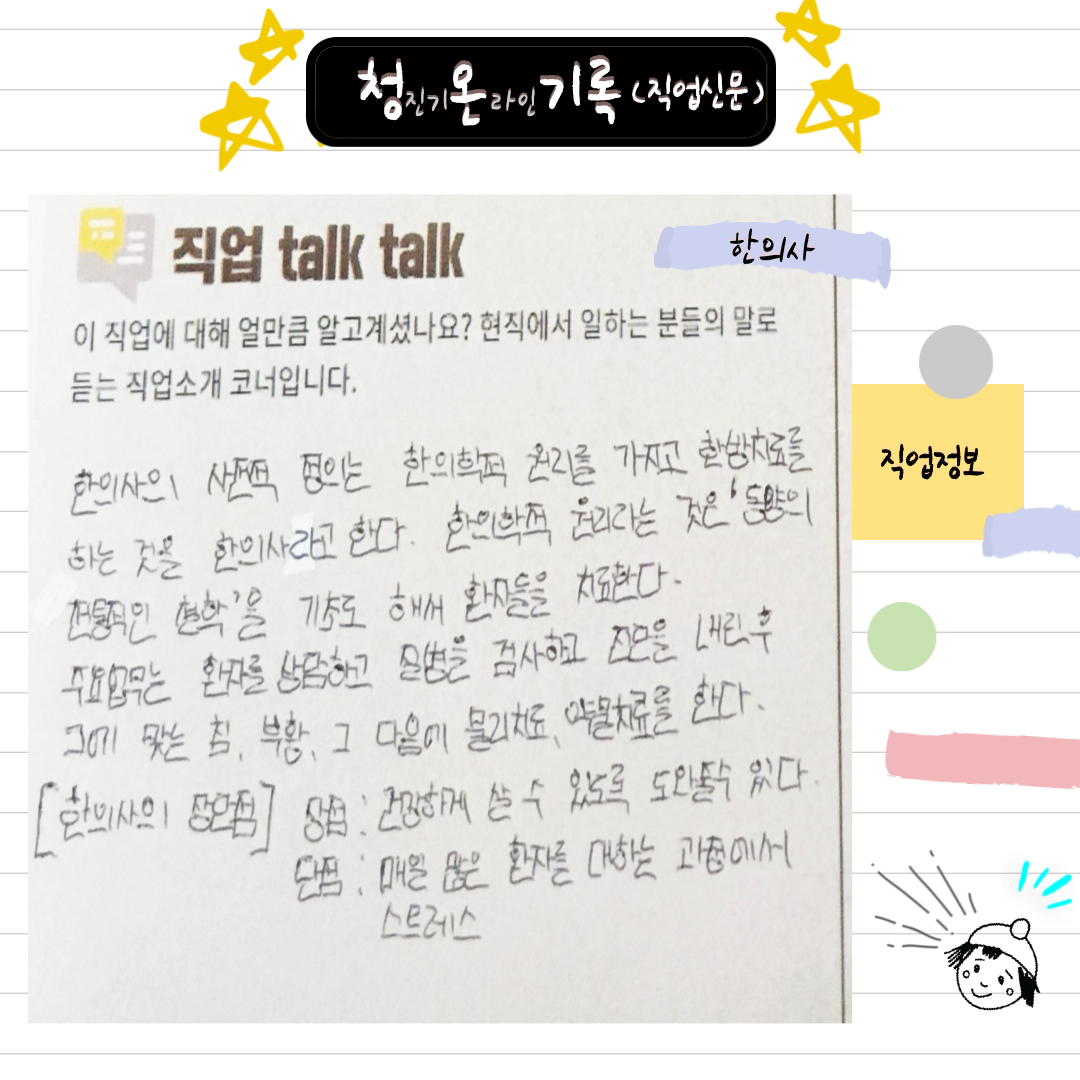 청진기온라인기록(직업신문)
직업 talk talk
한의사
이 직업에 대해 얼만큼 알고계셨나요? 현직에서 일하는 분들의 말로
듣는 직업소개 코너입니다.
직업정보
한의사의 사전적 정의는 한의학적 원리를 가지고 한방치료를
하는 것을 한의사라고 한다. 한의학적 원리라는 것은 '동양의
전통적인 현학'을 기초로 해서 환자들을 치료한다.
주요업무는 환자를 상담하고 질병을 검사하고 진단을 내린 후
그에 맞는 침, 부황, 그 다음에 물리치료, 약물치료를 한다.
[한의사의 장단점] 장점 : 건강하게 살 수 있도록 도와줄수 있다.
단점 : 매일 많은 환자를 대하는 과정에서
스트레스